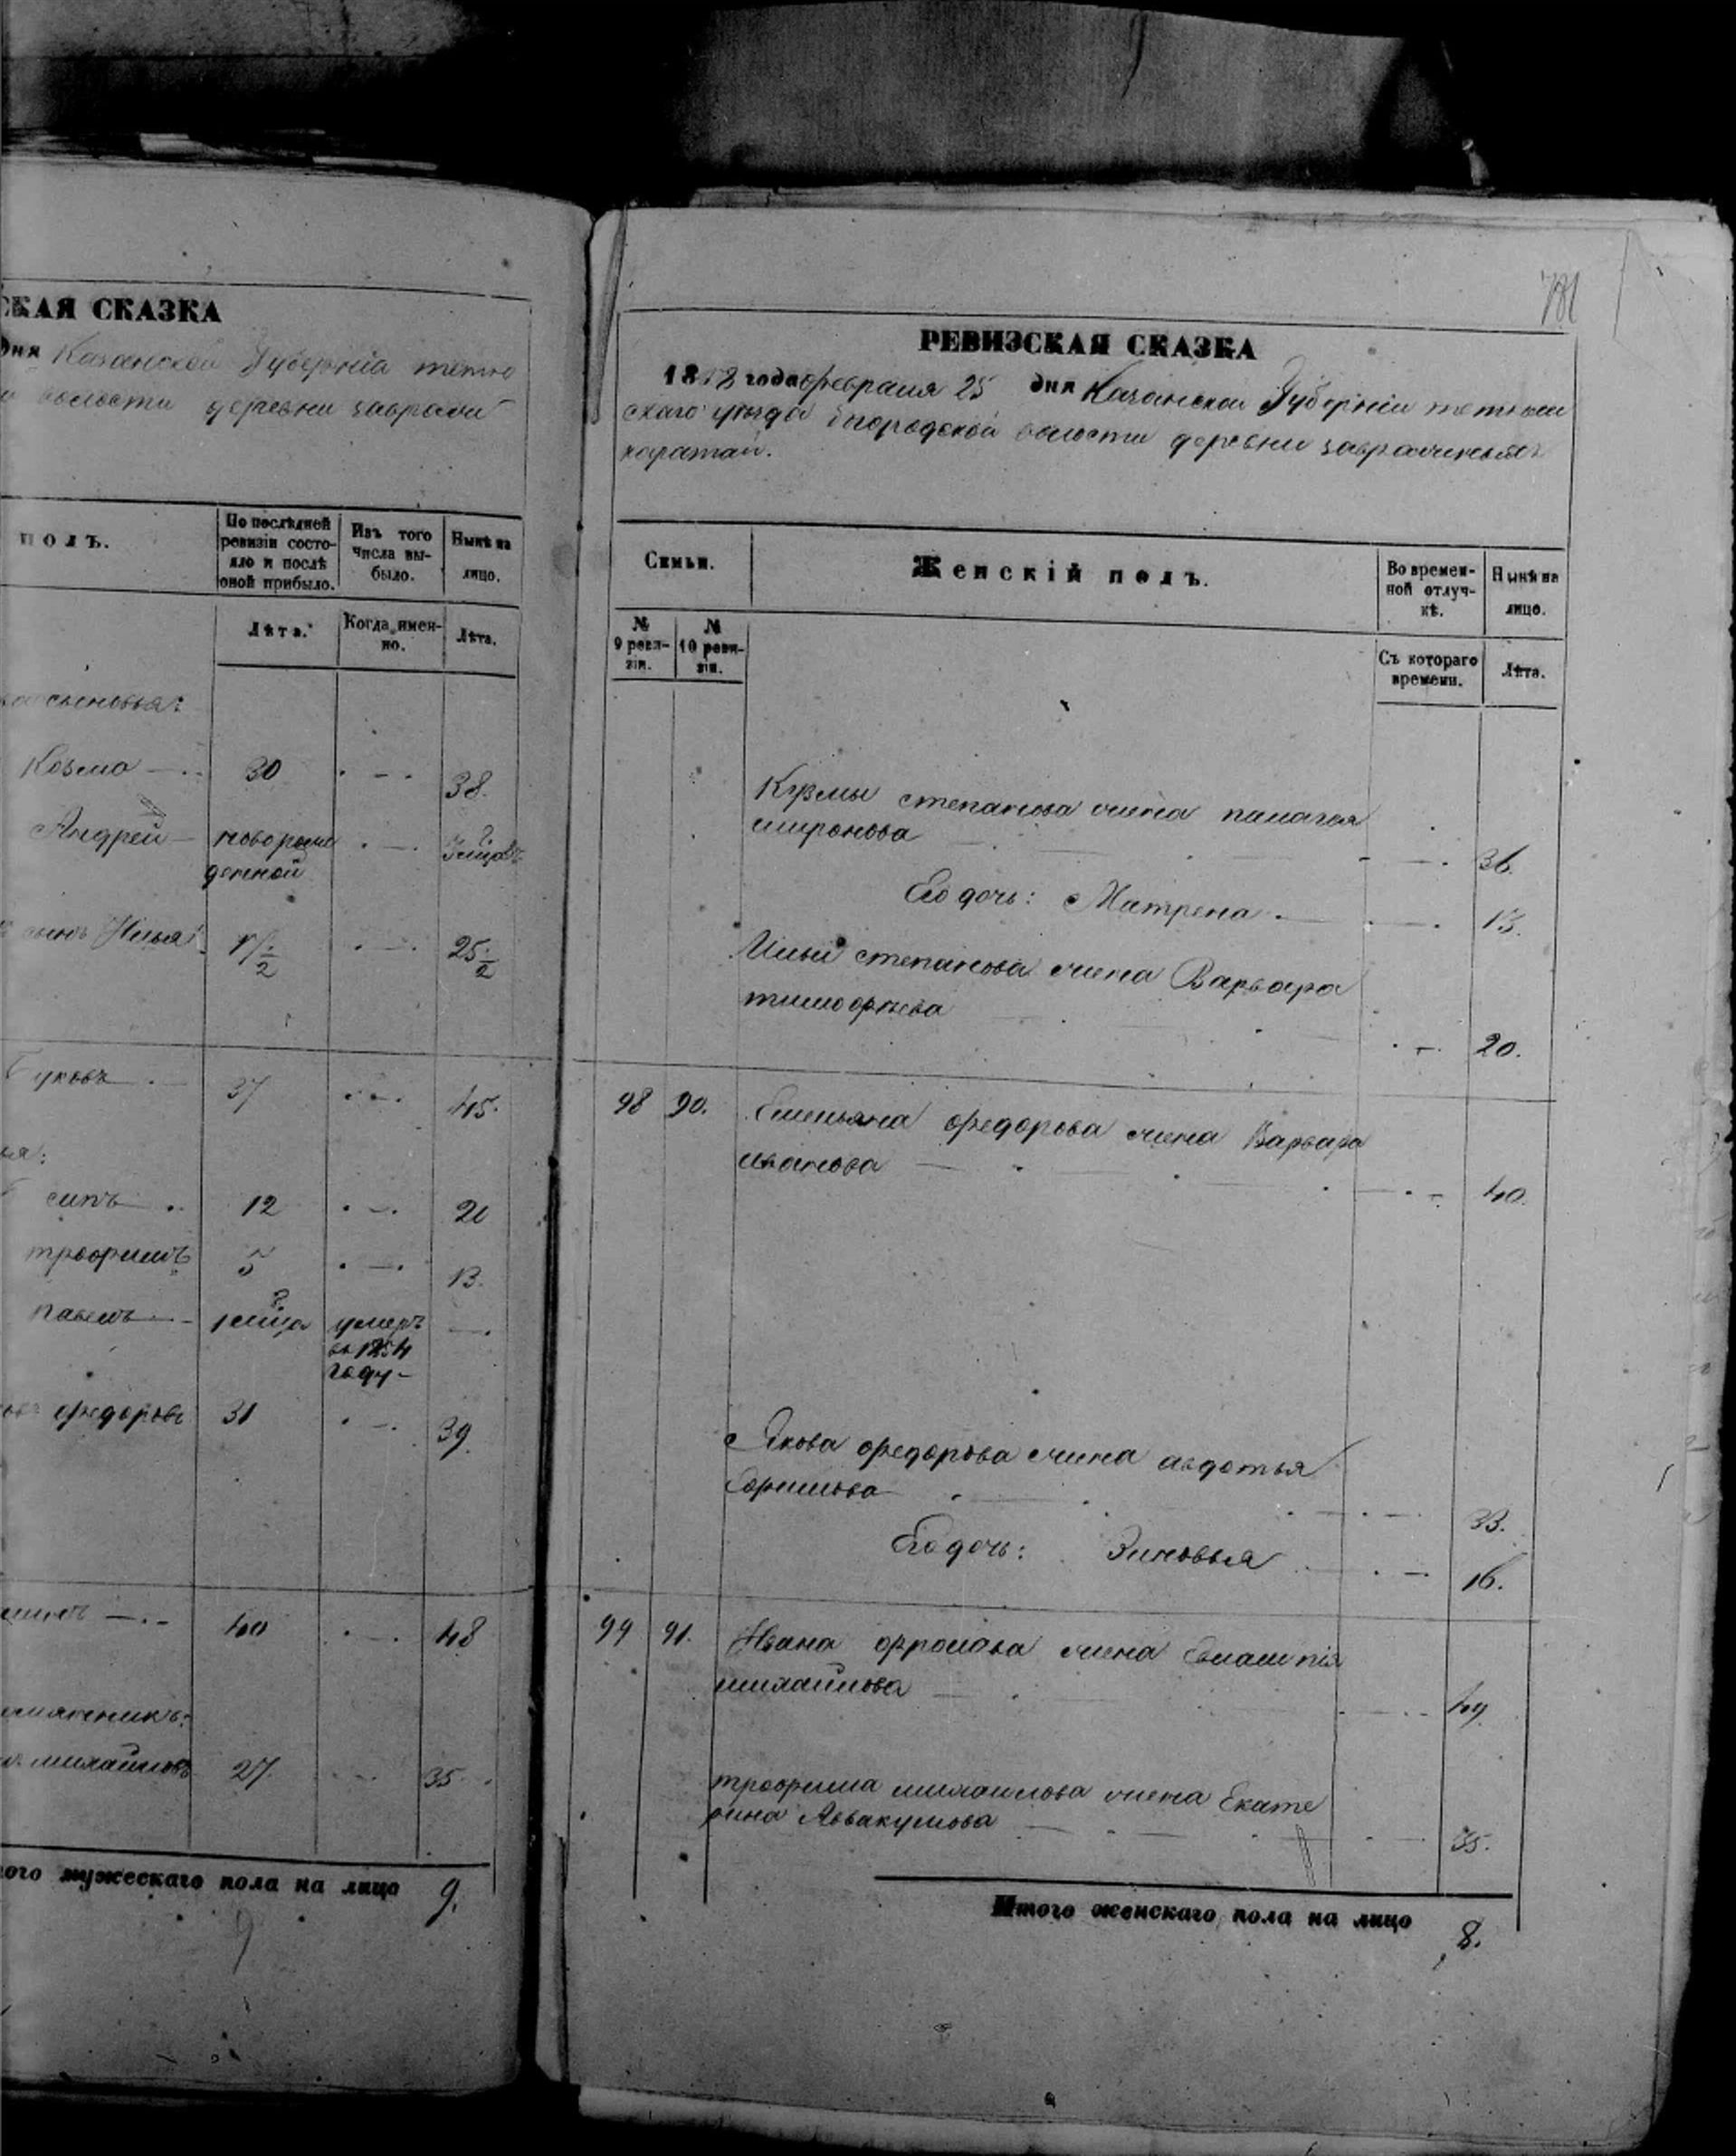 СКАЯ СКАЗКА
дня Казанской Губерніа тетю
волости деревни заврачи
полъ.
По послѣдней
ревизіи состо-
яло и послѣ
оной прибыло.
Изъ того
числа вы-
было.
Нынѣ на
лицо.
Лѣта.
Когда имен-
но.
Лѣта.
сыновья:
Козма 30 38.
Андрей новорож 3 мѣца
денной
сынъ Илья 17 1/2 25 1/2
37 45.
сипъ 12 20
трофимъ 5 13.
павелъ 1 мѣца умеръ
въ 1854
году
федоровъ 31 39.
40 48
племянникъ:
михайловъ 27. 35
того мужескаго пола на лицо 9.
9
781
РЕВИЗСКАЯ СКАЗКА
1858 года февраля 25 дня Казанской Губерніи тетюш
скаго уѣзда богородской волости деревни заврачиныхъ
каратай.
Семьи.
Женскій полъ.
Во времен-
ной отлуч-
кѣ.
Нынѣ на
лицо.
№
9 реви-
зіи.
№
10 реви-
зіи.
Съ котораго
времени.
Лѣта.
Кузмы степанова жена палагея
миронова 36.
Его дочь: Матрена 13.
Ильи степанова жена Варвара
тимофѣева 20.
98 90. Емельяна федорова жена Варвара
иванова 40.
Якова федорова жена авдотья
Ефимова 33.
Его дочь: Зиновья 16.
99 91. Ивана фролова жена Евлампія
михайлова 49.
трофима михаилова жена Екате
рина Аввакумова 35.
Итого женскаго пола на лицо 8.